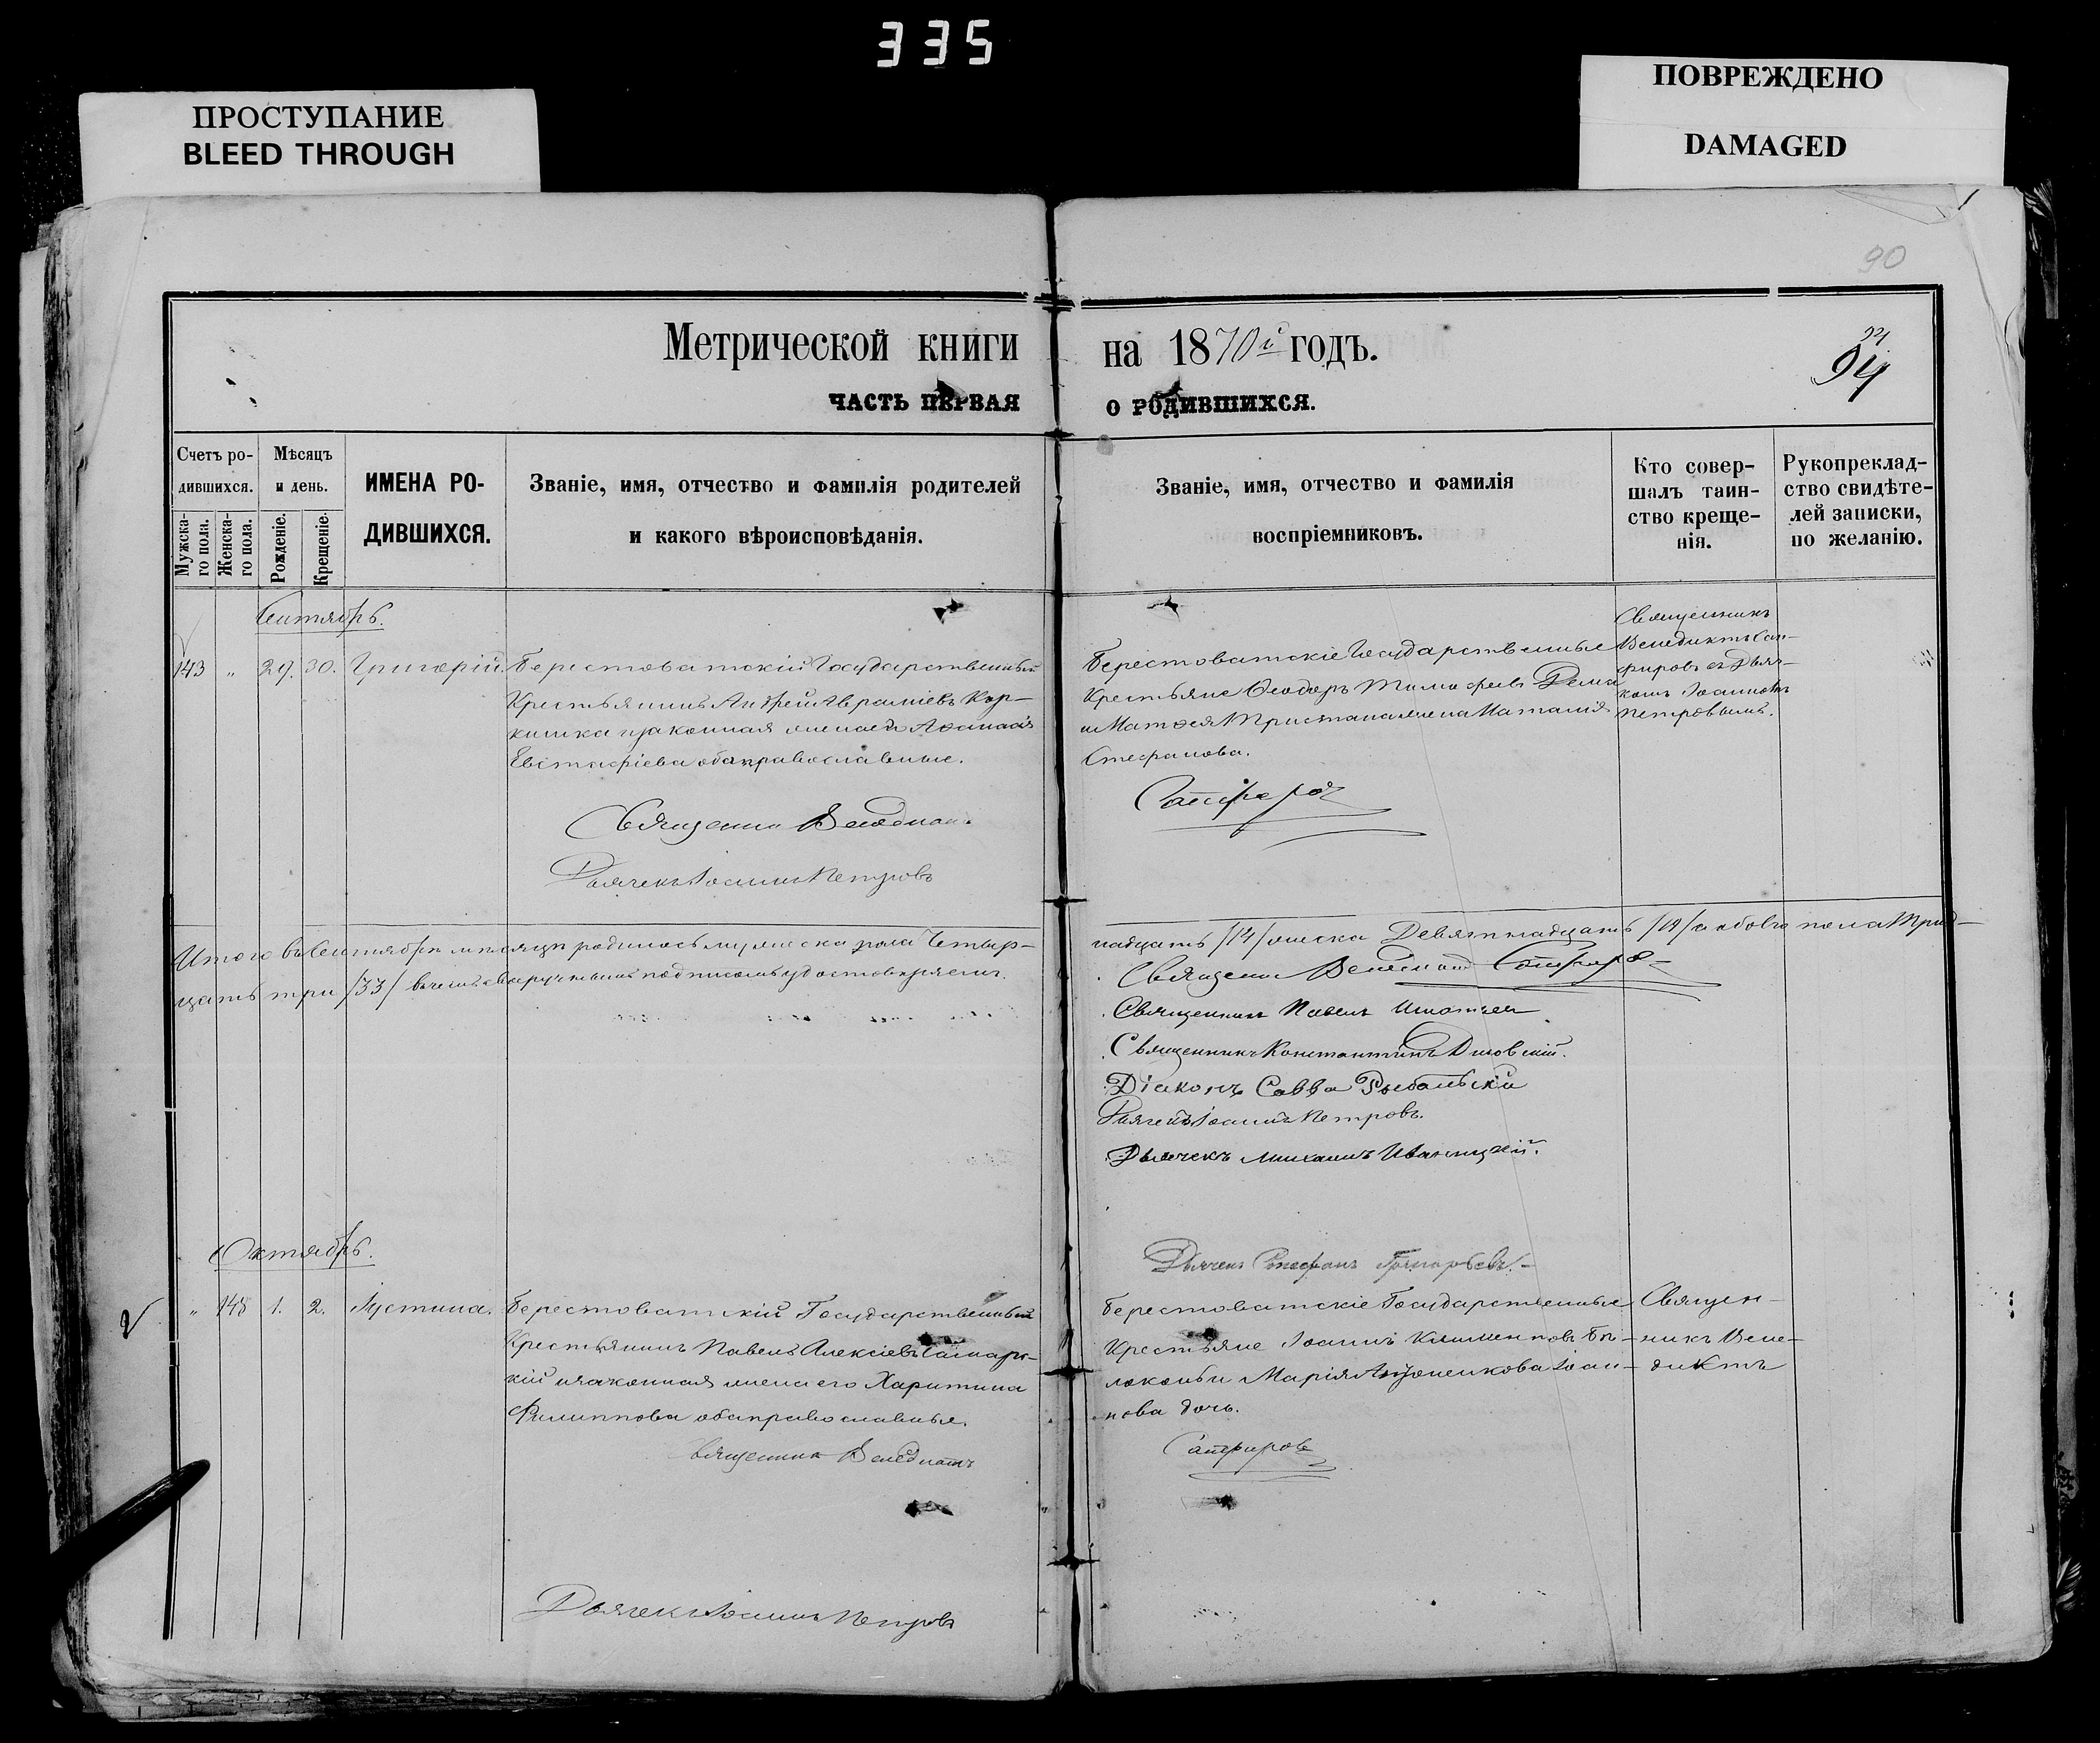 335
ПРОСТУПАНИЕ
BLEED THROUGH
ПОВРЕЖДЕНО
DAMAGED
90
Метрической книги на 1870й годъ.
94
ЧАСТЬ ПЕРВАЯ О РОДИВШИХСЯ.
Счетъ ро-
дившихся.
Мужска-
го пола.
Женска-
го пола.
Мѣсяцъ
и день.
Рождение.
Крещение.
ИМЕНА РО-
ДИВШИХСЯ.
Званіе, имя, отчество и фамилія родителей
и какого вѣроисповѣданія.
Званіе, имя, отчество и фамилія
воспріемниковъ.
Кто совер-
шалъ таин-
ство креще-
нія.
Рукопреклад-
ство свидѣте-
лей записки,
по желанію.
Сентябрь.
143 " 29. 30. Григорій.
Берестоватскій Государственный
Крестьянинъ Андрей Авраміевъ Кор-
кишка и законная жена его
Евстафіева оба православные.
Священникъ Венедиктъ
Дьячекъ Іоаннъ Петровъ
Берестоватскіе Государственные
Крестьяне Ѳеодоръ Тимофеевъ
жена Наталія
Стефанова.
Сапфировъ
Священникъ
Венедиктъ Сап-
фировъ съ Дьяч-
комъ Іоанномъ
Петровымъ.
Итого въ Сентябрѣ мѣсяцѣ родилось мужеска пола Четыр-
надцать /14/ женска Девятнадцать /19/ а обоего пола Трид-
цать три /33/ въ чемъ своеручнымъ подписомъ удостовѣряемъ.
Священникъ Венедиктъ Сапфировъ
Священникъ Павелъ
Священникъ Константинъ
Діаконъ Савва Рыбальскій
Дьячекъ Іоаннъ Петровъ.
Дьячекъ Михаилъ Иваницкій.
Дьячекъ Стефанъ Григорьевъ.
Октябрь.
" 148 1. 2. Іустина.
Берестоватскій Государственный
Крестьянинъ Павелъ Алексіевъ Самар-
кій и законная жена его Харитина
Филиппова оба православные.
Священникъ Венедиктъ
Дьячекъ Іоаннъ Петровъ
Берестоватскіе Государственные
Крестьяне Іоаннъ Климентовъ Бѣ-
локонь и Марія Іоан-
нова дочь.
Сапфировъ
Священ-
никъ Вене-
диктъ